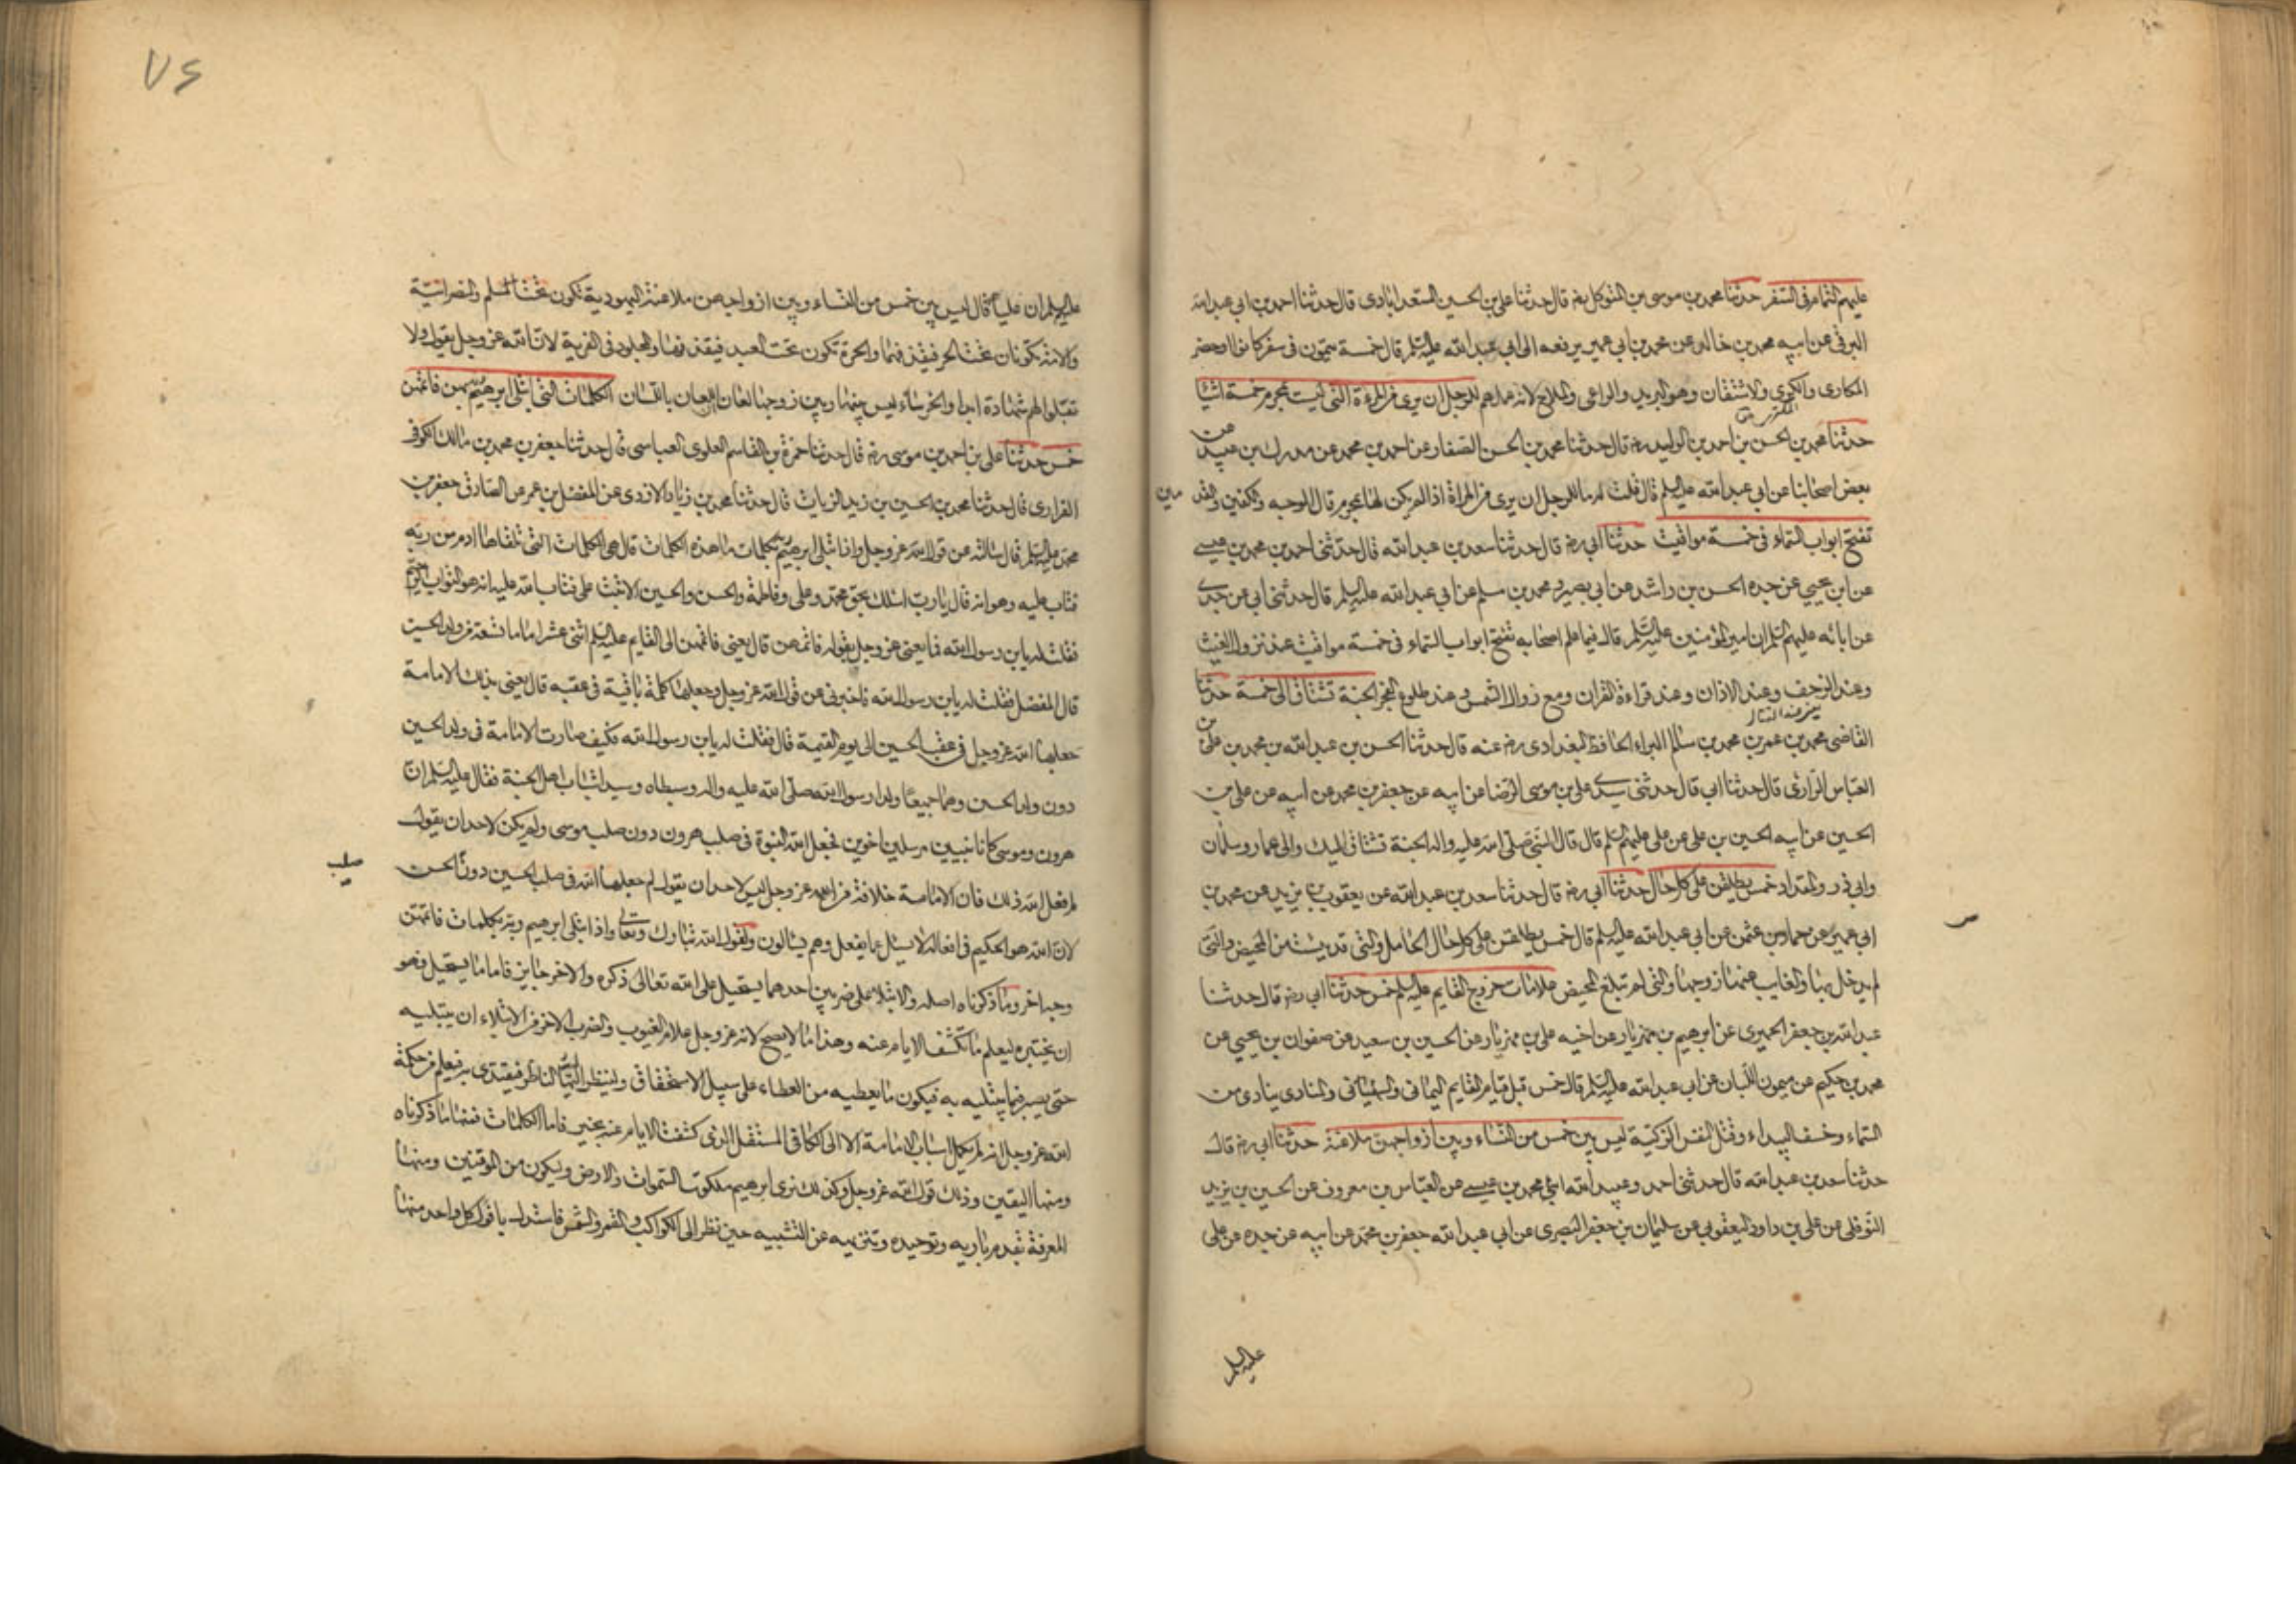 عليهم التمام فى السفر حدثنا محمد بن موسى بن المتوكل رض قال حدثنا على بن الحسين السعدابادى قال حدثنا احمد بن ابى عبد الله
البرقى عن ابيه محمد بن خالد عن محمد بن ابى عمير يرفعه الى ابى عبد الله عليه السلم قال خمسة يتمون فى سفر كانوا او حضر
المكارى والكرى والاشتقان وهو البريد والراعى والملاح لانه عملهم للرجل ان يرى من المرءة التى ليست بمحرم خمسة اشياء
حدثنا محمد بن الحسن بن احمد بن الوليد رض قال حدثنا محمد بن الحسن الصفار عن احمد بن محمد عن مدرك بن عبيد عن
بعض اصحابنا عن ابى عبد الله عليه السلم قال قلت له ما للرجل ان يرى من المراة اذا لم يكن لها بمحرم قال الوجه والكفين والقد مين
تفتح ابواب السماء فى خمسة مواقيت حدثنا ابى رض قال حدثنا سعد بن عبد الله قال حدثنى احمد بن محمد بن عيسى
عن ابن يحيي عن جده الحسن بن راشد عن ابى بصير ومحمد بن مسلم عن ابى عبد الله عليه السلم قال حدثنى ابى عن جدى
عن ابائه عليهم السلم ان امير المؤمنين عليه السلم قال فيما علم اصحابه تفتح ابواب السماء فى خمسة مواقيت عند نزول الغيث
وعند الزحف وعند الاذان وعند قراءة القران ومع زوال الشمس وعند طلوع الفجر الجنة تشتاق الى خمسة حدثنا
القاضى محمد بن عمر بن محمد بن سالم البراء الحافظ البغدادى رض عنه قال حدثنا الحسن بن عبد الله بن محمد بن على بن
العباس الرازى قال حدثنا ابى قال حدثنى سيدى على بن موسى الرضا عن ابيه عن جعفر بن محمد عن ابيه عن على بن
الحسين عن ابيه الحسين بن على عن على عليهم السلم قال قال النبى صلى الله عليه واله الجنة تشتاق اليك والى عمار وسلمان
وابى ذر والمقداد خمس يطلقن على كل حال حدثنا ابى رض قال حدثنا سعد بن عبد الله عن يعقوب بن يزيد عن محمد بن
ابى عمير عن حماد بن عثمن عن ابى عبد الله عليه السلم قال خمس يطلقن على كل حال الحامل والتى قد يئست من المحيض والتى
لم يدخل بها والغايب عنها زوجها والتى لم تبلغ المحيض علامات خروج القايم عليه السلم خمس حدثنا ابى رض قال حدثنا
عبد الله بن جعفر الحميرى عن ابرهيم بن مهزيار عن اخيه على بن مهزيار عن الحسين بن سعيد عن صفوان بن يحيي عن
محمد بن حكيم عن ميمون اللبان عن ابى عبد الله عليه السلم قال خمس قبل قيام القايم اليمانى والسفيانى والمنادى ينادى من
السماء وخسف البيداء وقتل النفس الزكية ليس بين خمس من النساء وبين ازواجهن ملاعنة حدثنا ابى رض قال
حدثنا سعد بن عبد الله قال حدثنى احمد وعبد الله ابنى محمد بن عيسى عن العباس بن معروف عن الحسين بن يزيد
النوفلى عن على بن داود اليعقوبى عن سليمان بن جعفر البصرى عن ابى عبد الله جعفر بن محمد عن ابيه عن جده عن على
عليه السلم
عليه السلم ان عليا قال ليس بين خمس من النساء وبين ازواجهن ملاعنة اليهودية تكون تحت المسلم والنصرانية
والامة تكونان تحت الحر فيقذفهما والحرة تكون تحت العبد فيقذفها والمجلود فى الفرية لان الله عز وجل يقول ولا
تقبلوا لهم شهادة ابدا والخرساء ليس بينها وبين زوجها لعان انما اللعان باللسان الكلمات التى ابتلى ابرهيم ربه بهن فاتمهن
خمس حدثنا على بن احمد بن موسى رض قال حدثنا حمزة بن القاسم العلوى العباسى قال حدثنا جعفر بن محمد بن مالك الكوفى
الفزارى قال حدثنا محمد بن الحسين بن زيد الزيات قال حدثنا محمد بن زياد الازدى عن المفضل بن عمر عن الصادق جعفر بن
محمد عليه السلم قال سالته عن قول الله عز وجل واذا ابتلى ابرهيم ربه بكلمات ما هذه الكلمات قال هى الكلمات التى تلقاها ادم من ربه
فتاب عليه وهو انه قال يا رب اسئلك بحق محمد وعلى وفاطمة والحسن والحسين الا تبت على فتاب الله عليه انه هو التواب الرحيم
فقلت له يا بن رسول الله فما يعنى عز وجل بقوله فاتمهن قال يعنى فاتمهن الى القايم عليه السلم اثنى عشر اماما تسعة من ولد الحسين
قال المفضل فقلت له يا بن رسول الله فاخبرنى عن قول الله عز وجل وجعلها كلمة باقية فى عقبه قال يعنى بذلك الامامة
جعلها الله عز وجل فى عقب الحسين الى يوم القيمة قال فقلت له يا بن رسول الله فكيف صارت الامامة فى ولد الحسين
دون ولد الحسن وهما جميعا ولدا رسول الله صلى الله عليه واله وسبطاه وسيدا شباب اهل الجنة فقال عليه السلم ان
هرون وموسى كانا نبيين مرسلين اخوين فجعل الله النبوة فى صلب هرون دون صلب موسى ولم يكن لاحد ان يقول
لم فعل الله ذلك فان الامامة خلافة من الله عز وجل ليس لاحد ان يقول لم جعلها الله فى صلب الحسين دون الحسن
صلب
لان الله هو الحكيم فى افعاله لا يسئل عما يفعل وهم يسالون ولقول الله تبارك وتعالى واذا ابتلى ابرهيم ربه بكلمات فاتمهن
وجه اخر وما ذكرناه اصله والابتلاء على ضربين احدهما يستحيل على الله تعالى ذكره والاخر جايز فاما ما يستحيل فهو
ان يختبره ليعلم ما تكشف الايام عنه وهذا ما لا يصح لانه عز وجل علام الغيوب والضرب الاخر من الابتلاء ان يبتليه
حتى يصبر فيما يبتليه به فيكون ما يعطيه من العطاء على سبيل الاستحقاق ولينظر اليه الناظر فيقتدى به فيعلم من حكمة
الله عز وجل انه لم يكل اسباب الامامة الا الى الكافى المستقل الذى كشفت الايام عنه بخير فاما الكلمات فمنها ما ذكرناه
ومنها اليقين وذلك قول الله عز وجل وكذلك نرى ابرهيم ملكوت السموات والارض وليكون من الموقنين ومنها
المعرفة بقدم باريه وتوحيده وتنزيهه عن التشبيه حين نظر الى الكواكب والقمر والشمس فاستدل بافول كل واحد منها